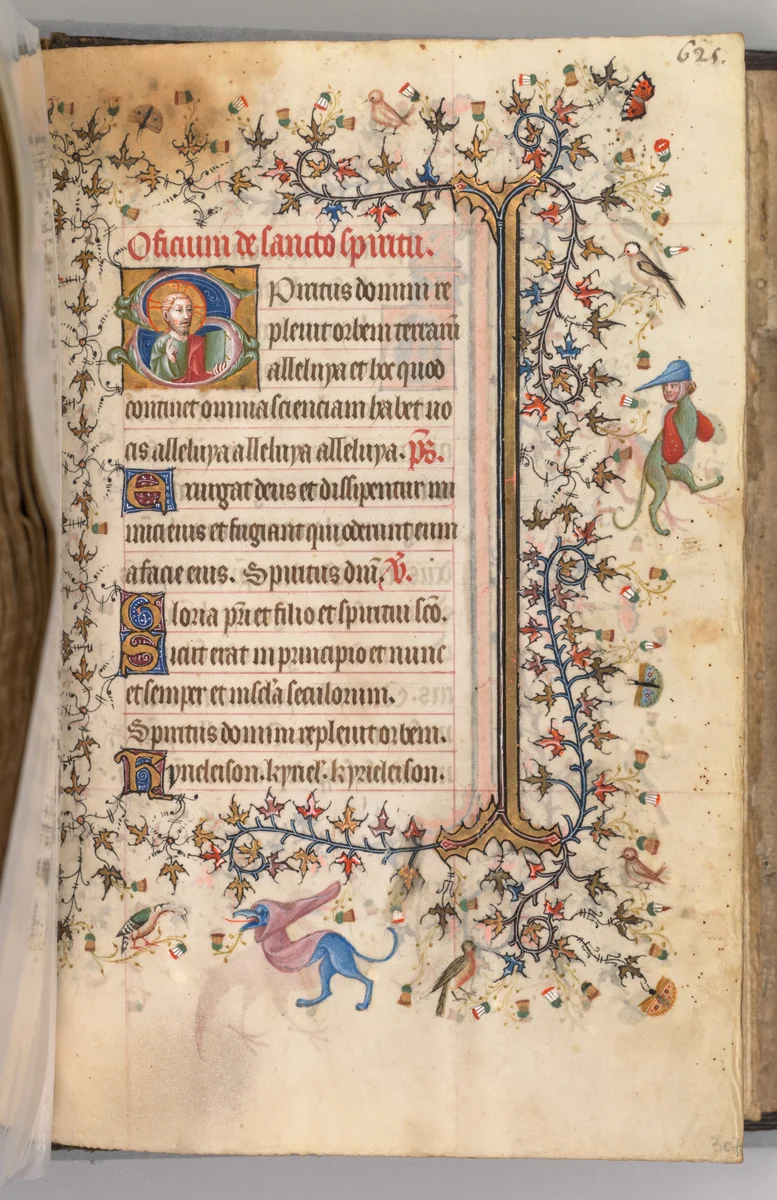 625.
Oficium de sancto spiritu.
Spiritus domini re
pleuit orbem terrarū
alleluya et hoc quod
continet omnia scienciam habet uo
cis alleluya alleluya alleluya. p̄s.
Exurgat deus et dissipentur ini
mici eius et fugiant qui oderunt eum
a facie eius. Spiritus dn̄i. V.
Gloria pr̄i et filio et spiritui sc̄o.
Sicut erat in principio et nunc
et semper et in sc̄la seculorum.
Spiritus domini repleuit orbem.
Kyrieleison. kyriel'. kyrieleison.